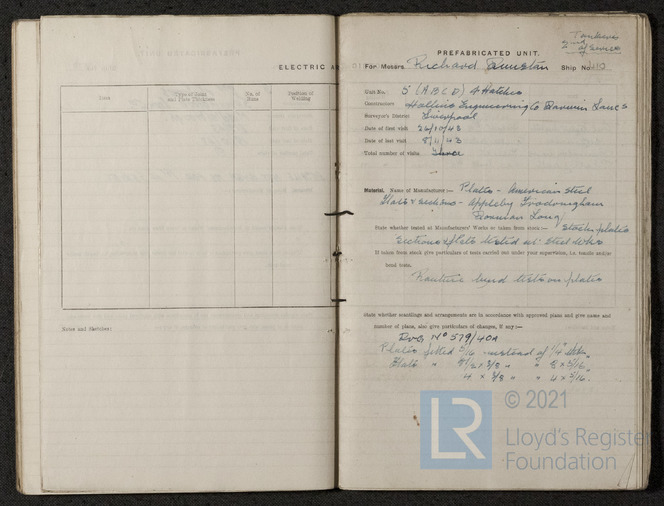 ELECTRIC A
Date
Type of Seam
and Plate Thickness
No. of
Runs
Position of
Welding
Notes and Sketches:
2nd
of Series
PREFABRICATED UNIT.
For Messrs. Richard Dunston Ship No.
Unit No. 5 (A B C D) 4 Hatches
Constructors Hollins Engineering Co Darwen Lancs
Surveyor's District Liverpool
Date of first visit 26/10/43
Date of last visit 8/11/43
Total number of visits Three
Material. Name of Manufacturer:— Plates - American Steel
Flats & sections - Appleby Frodingham
Dorman Long
State whether tested at Manufacturers' Works or taken from stock:— Stock plates
Sections & flats tested at Steel Works
If taken from stock give particulars of tests carried out under your supervision, i.e. tensile and/or
bend tests.
Routine bend tests on plates
State whether scantlings and arrangements are in accordance with approved plans and give name and
number of plans, also give particulars of changes, if any:—
DRG No 579/40A
Plates fitted 5/16 instead of 1/4"
Flats " " " 8 x 5/16"
4 x 3/8 " " 4 x 5/16".
© 2021
LR
Lloyd's Register
Foundation